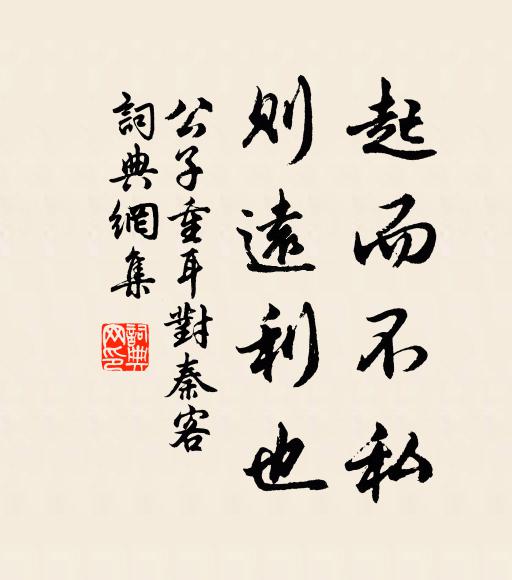 起而不私
則遠利也
公子重耳對秦客
詞典網集
詞典網印